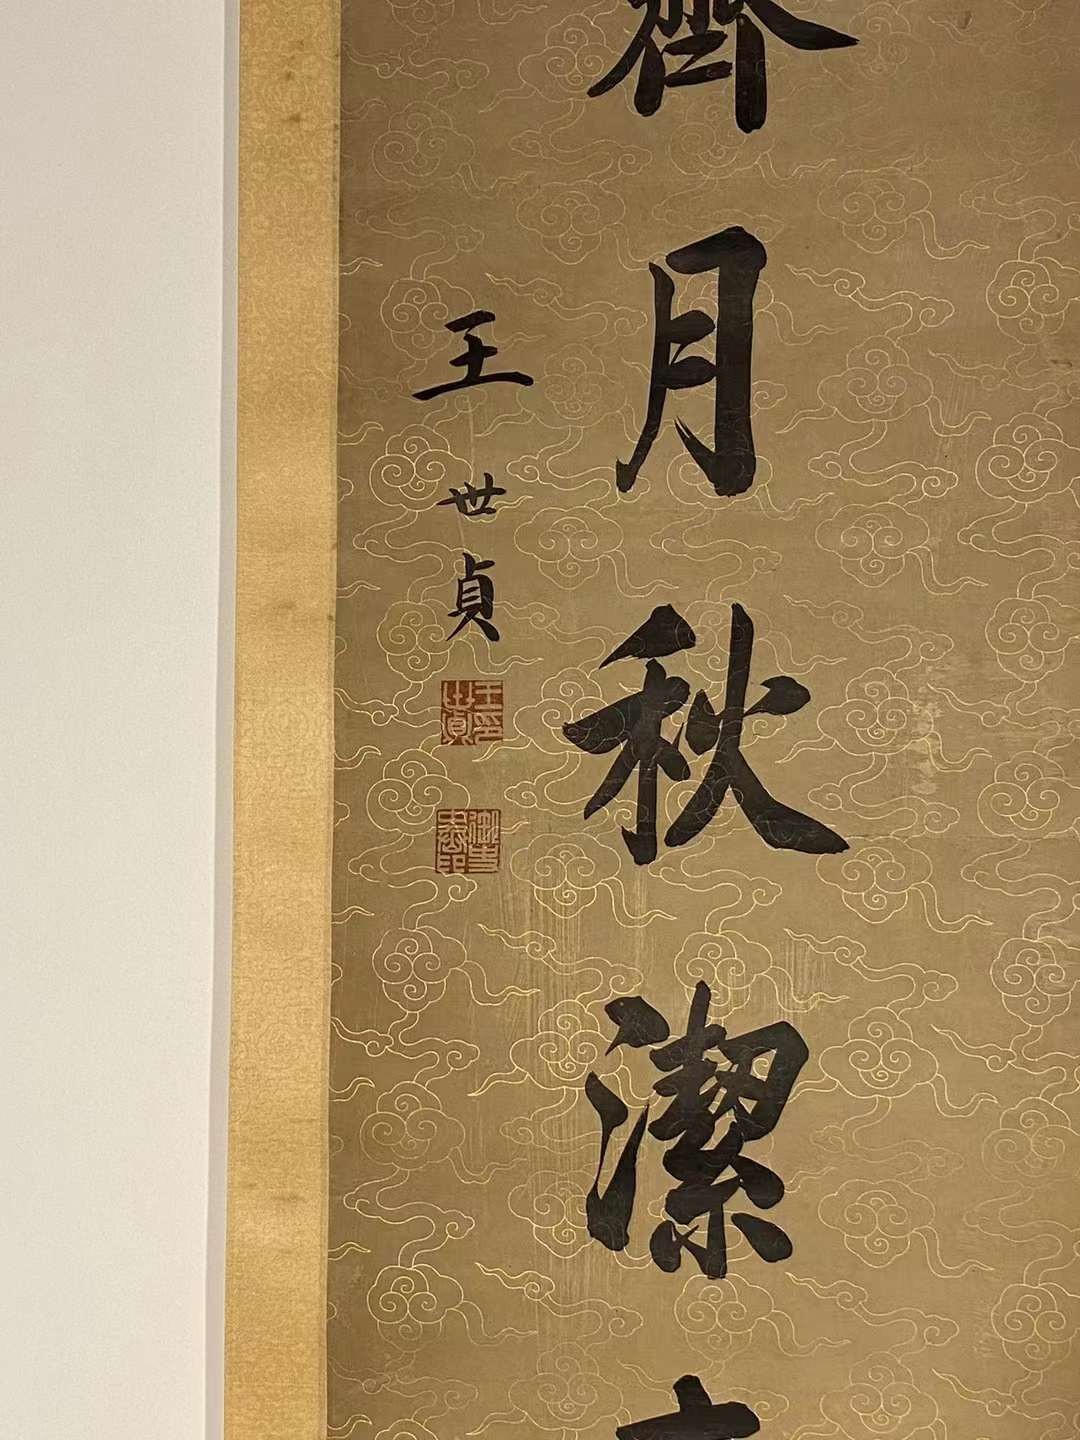 月秋潔
王世貞
王印世貞